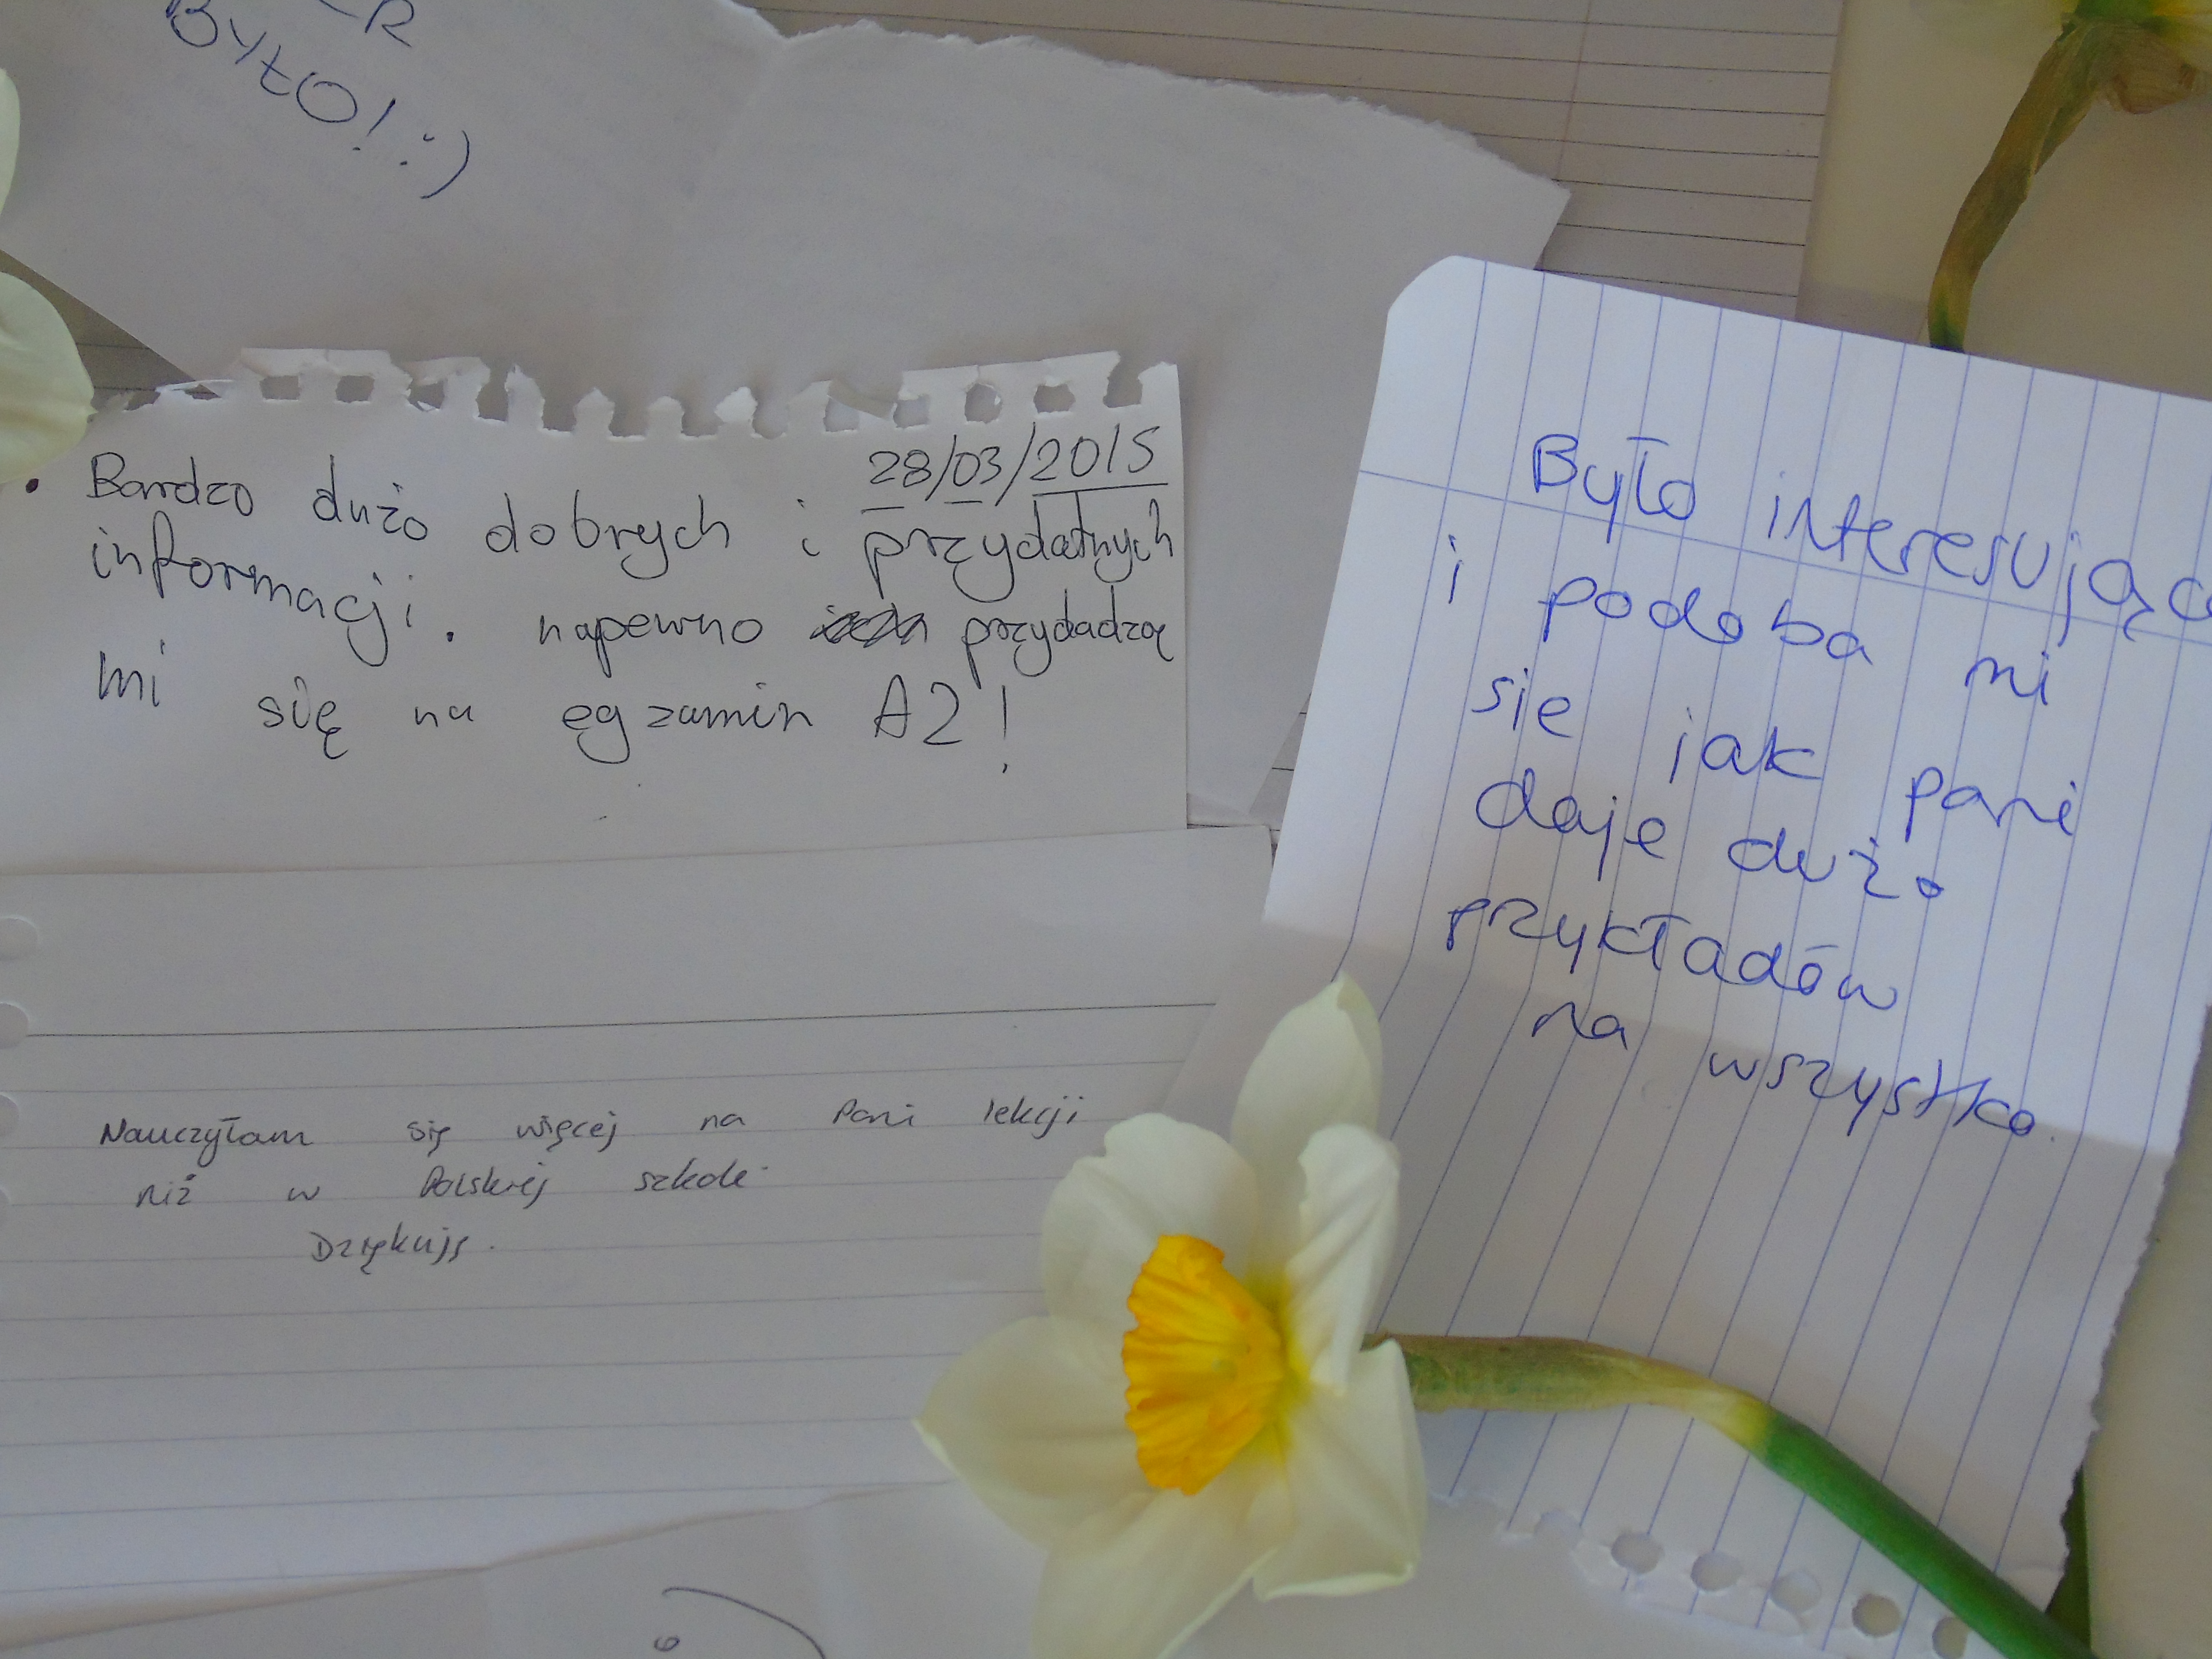 BYŁO! :)
28/03/2015
Bardzo dużo dobrych i przydatnych
informacji. napewno przydadzą
mi się na egzamin A2!
Było interesująco
i podoba mi
sie jak pani
daje dużo
przykładów
na wszystko.
Nauczyłam się więcej na Pani lekcji
niż w Polskiej szkole.
Dziękuję.